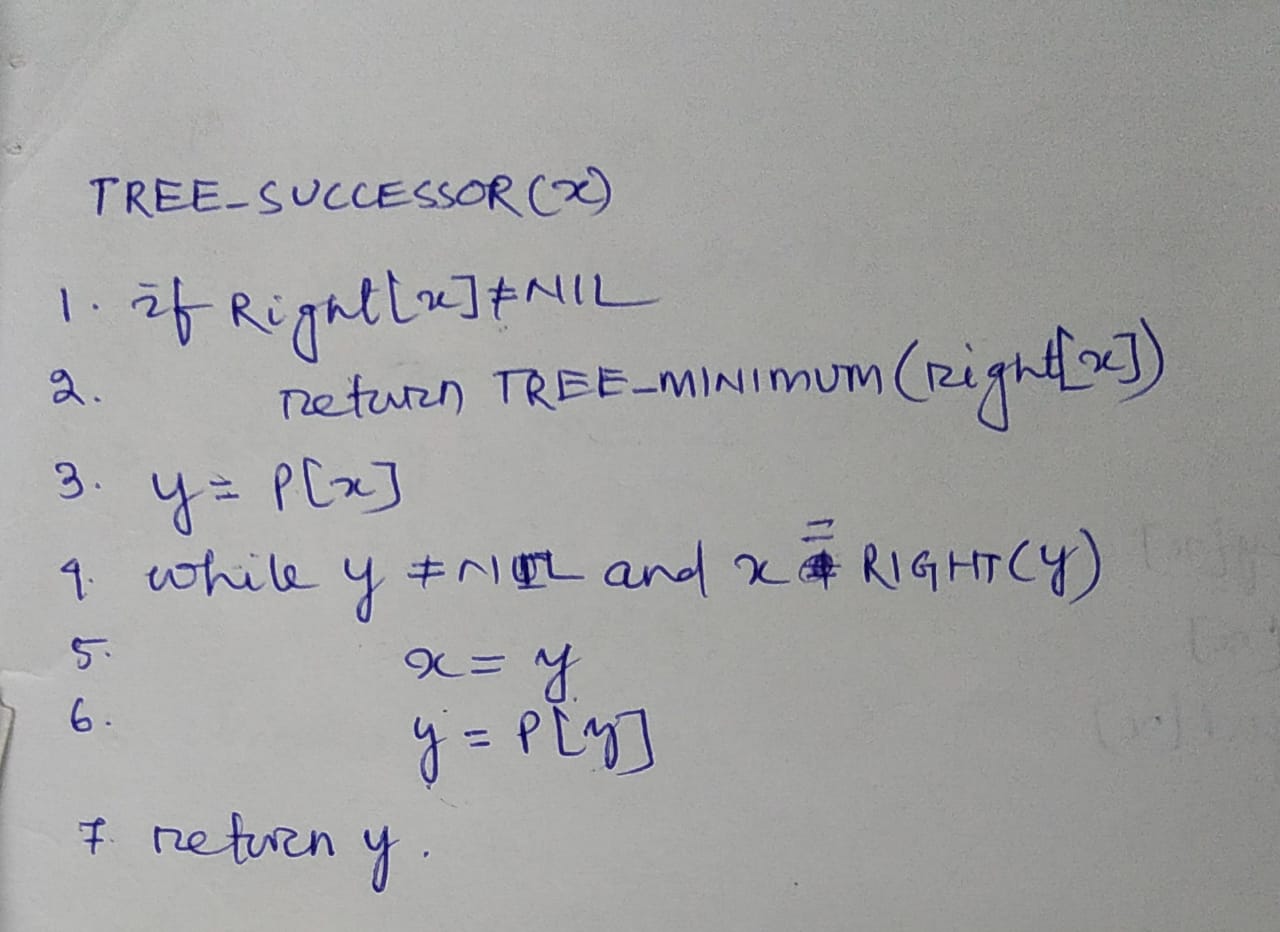 TREE-SUCCESSOR(x)
1. if Right[x]≠NIL
2. return TREE-MINIMUM(Right[x])
3. y = P[x]
4. while y ≠NIL and x = RIGHT(y)
5. x = y
6. y = P[y]
7. return y.